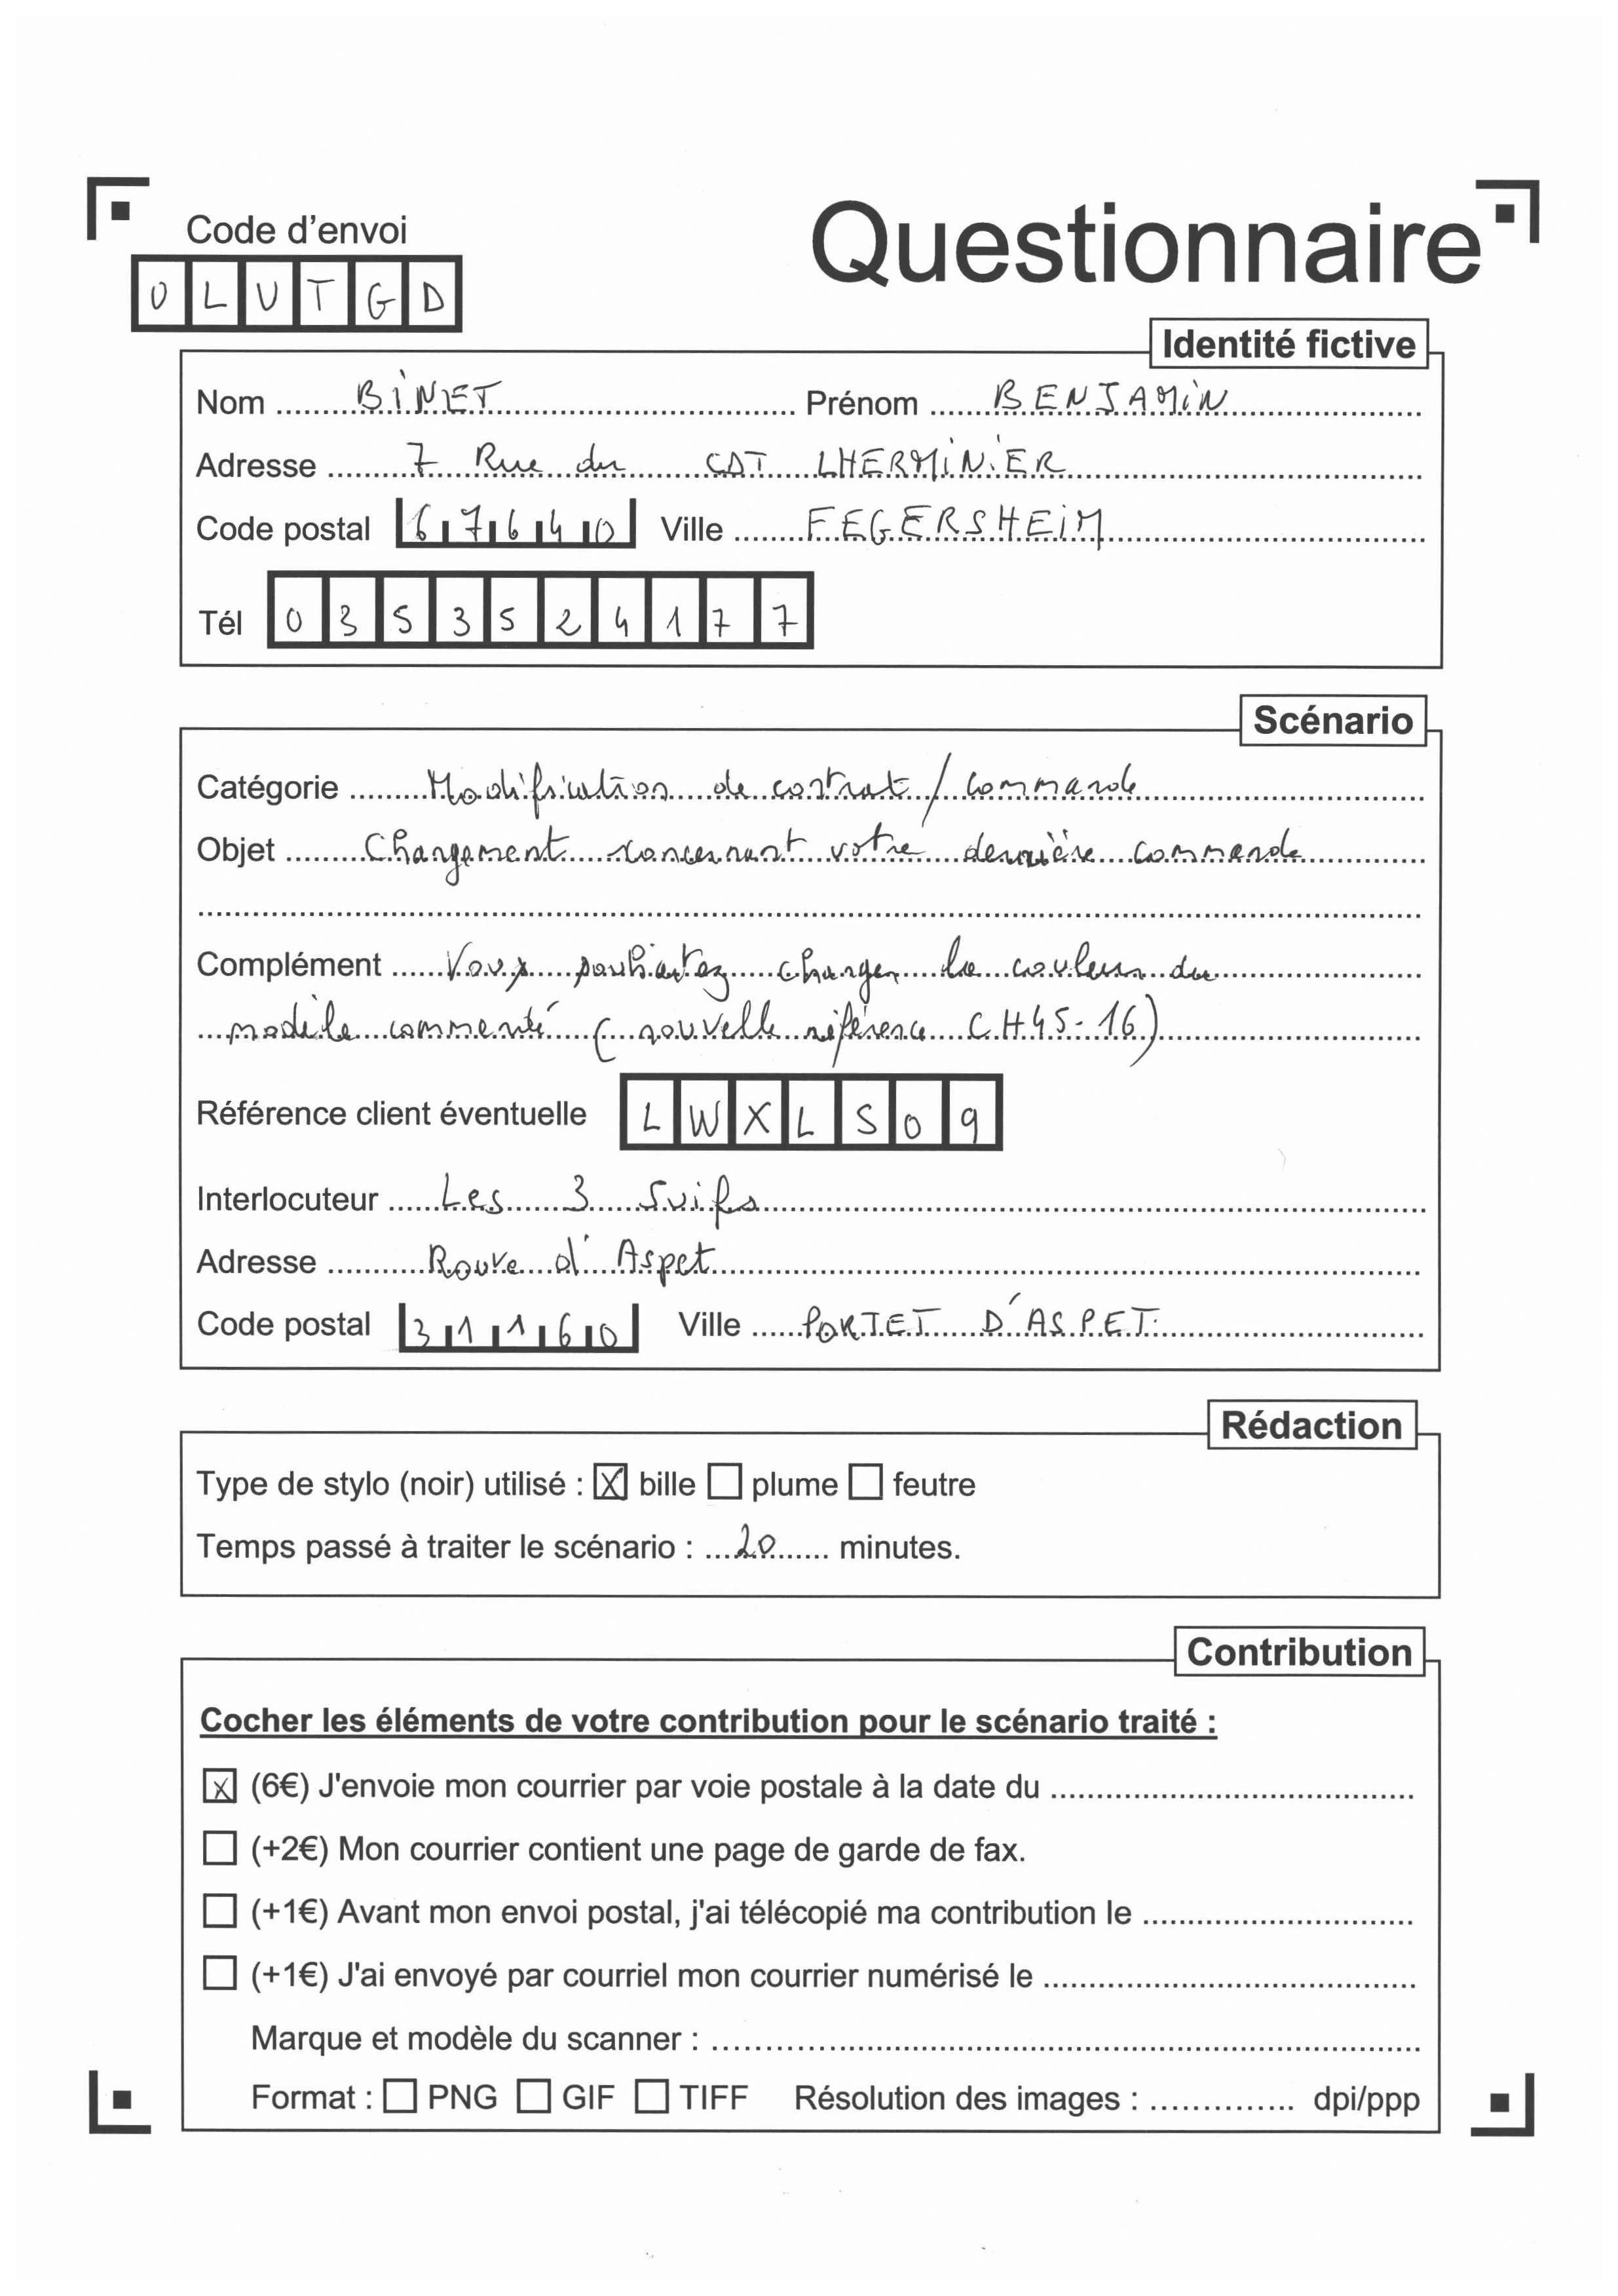 Code d'envoi
Questionnaire
O L U T G D
Identité fictive
Nom BINET Prénom BENJAMIN
Adresse 7 Rue du CDT LHERMINIER
Code postal 67640 Ville FEGERSHEIM
Tél 0353524177
Scénario
Catégorie Modification de contrat / commande
Objet Changement concernant votre dernière commande
Complément Vous souhaitez changer la couleur du
modèle commenté ( nouvelle référence CH45-16)
Référence client éventuelle L W X L S 0 9
Interlocuteur Les 3 Suifs
Adresse Rouve d'Aspet
Code postal 31160 Ville PORTET D'ASPET
Rédaction
Type de stylo (noir) utilisé : X bille plume feutre
Temps passé à traiter le scénario : 20 minutes.
Contribution
Cocher les éléments de votre contribution pour le scénario traité :
X (6€) J'envoie mon courrier par voie postale à la date du
(+2€) Mon courrier contient une page de garde de fax.
(+1€) Avant mon envoi postal, j'ai télécopié ma contribution le
(+1€) J'ai envoyé par courriel mon courrier numérisé le
Marque et modèle du scanner :
Format : PNG GIF TIFF Résolution des images : dpi/ppp